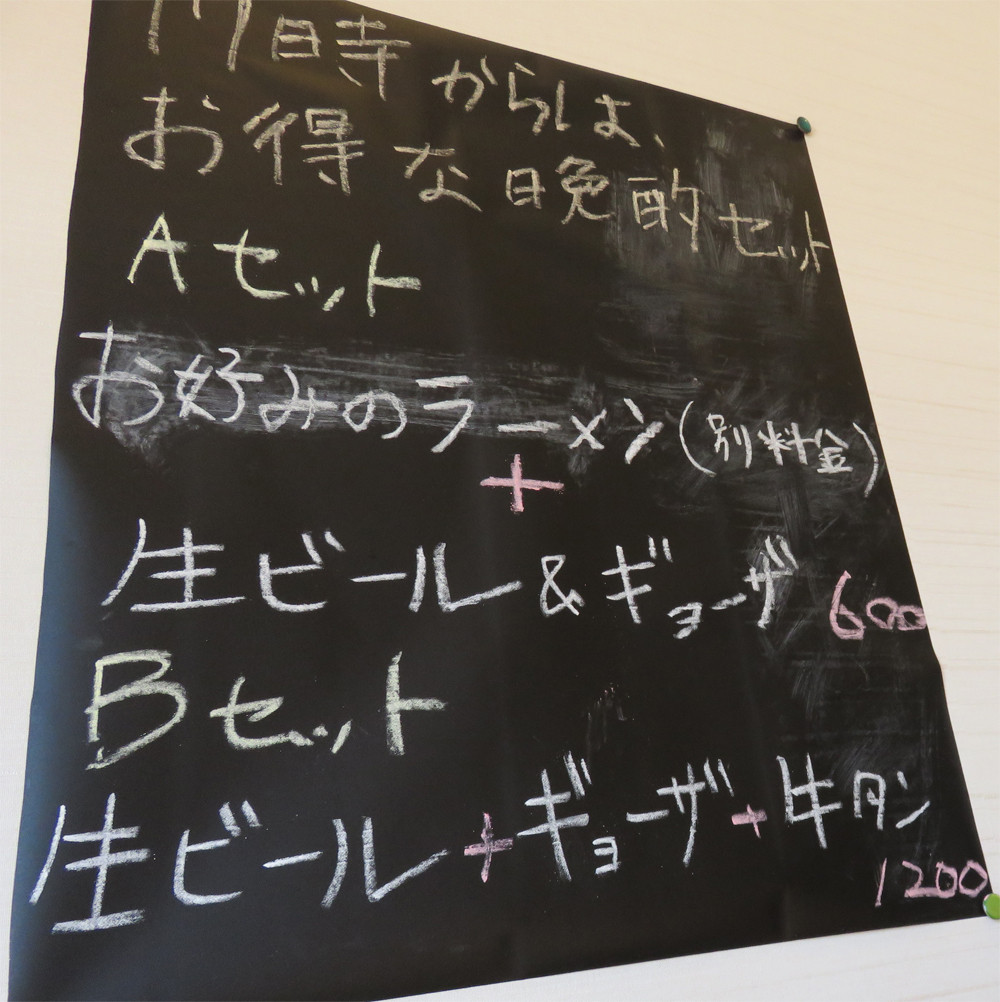 17時からは、
お得な晩酌セット
Aセット
お好みのラーメン(別料金)
+
生ビール&ギョーザ 600
Bセット
生ビール+ギョーザ+牛タン
1200